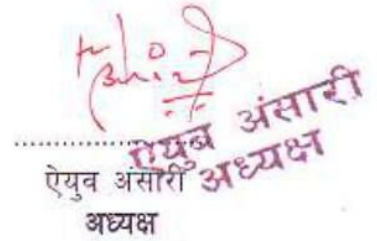 ....................
ऐयुव अंसारी
अध्यक्ष
ऐयुव अंसारी
अध्यक्ष